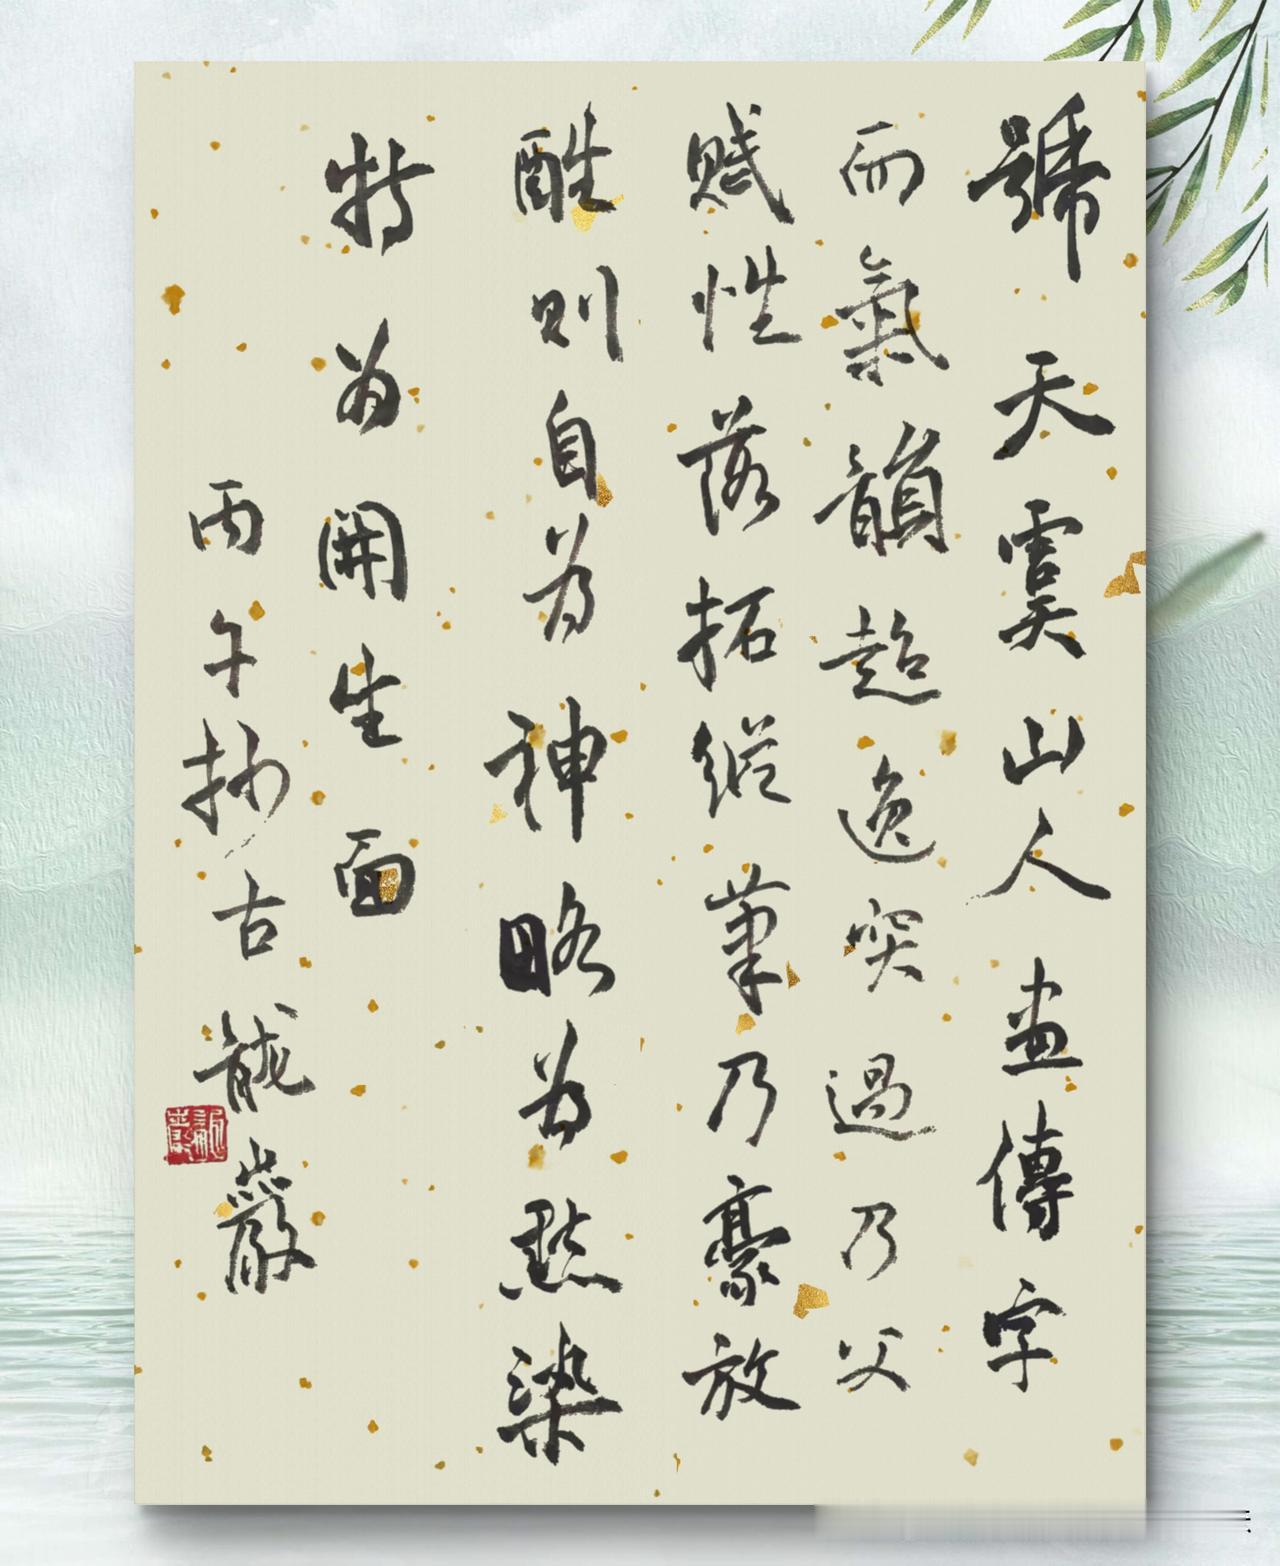 號天虞山人畫傳字
而氣韻超逸突過乃父
賦性落拓縱筆乃豪放
則自為神略為點染
特為開生面
丙午抄古龍巖